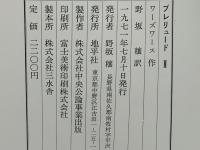 プレリュード Ⅱ
ワーズワース 作
野坂 穰 訳
一九七一年七月十日発行
発行者 野坂 穰
長野県南佐久郡南牧村字中沢
発行所 地平社
東京都中野区江古田一ノ二五ノ一
製作者 株式会社中央公論事業出版
印刷所 富士美術印刷株式会社
製本所 株式会社三水舎
定価 二二〇〇円